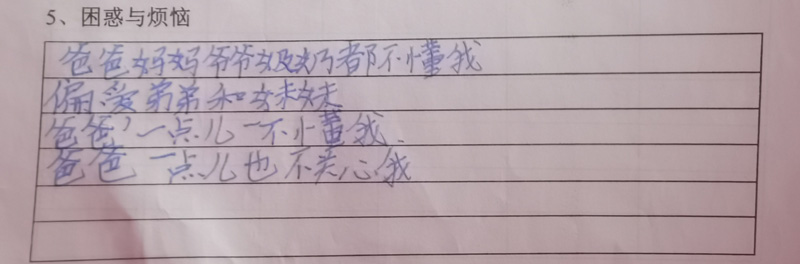 5、困惑与烦恼
爸爸妈妈爷爷奶奶都不懂我
偏爱弟弟和妹妹
爸爸一点儿不懂我.
爸爸一点儿也不关心我